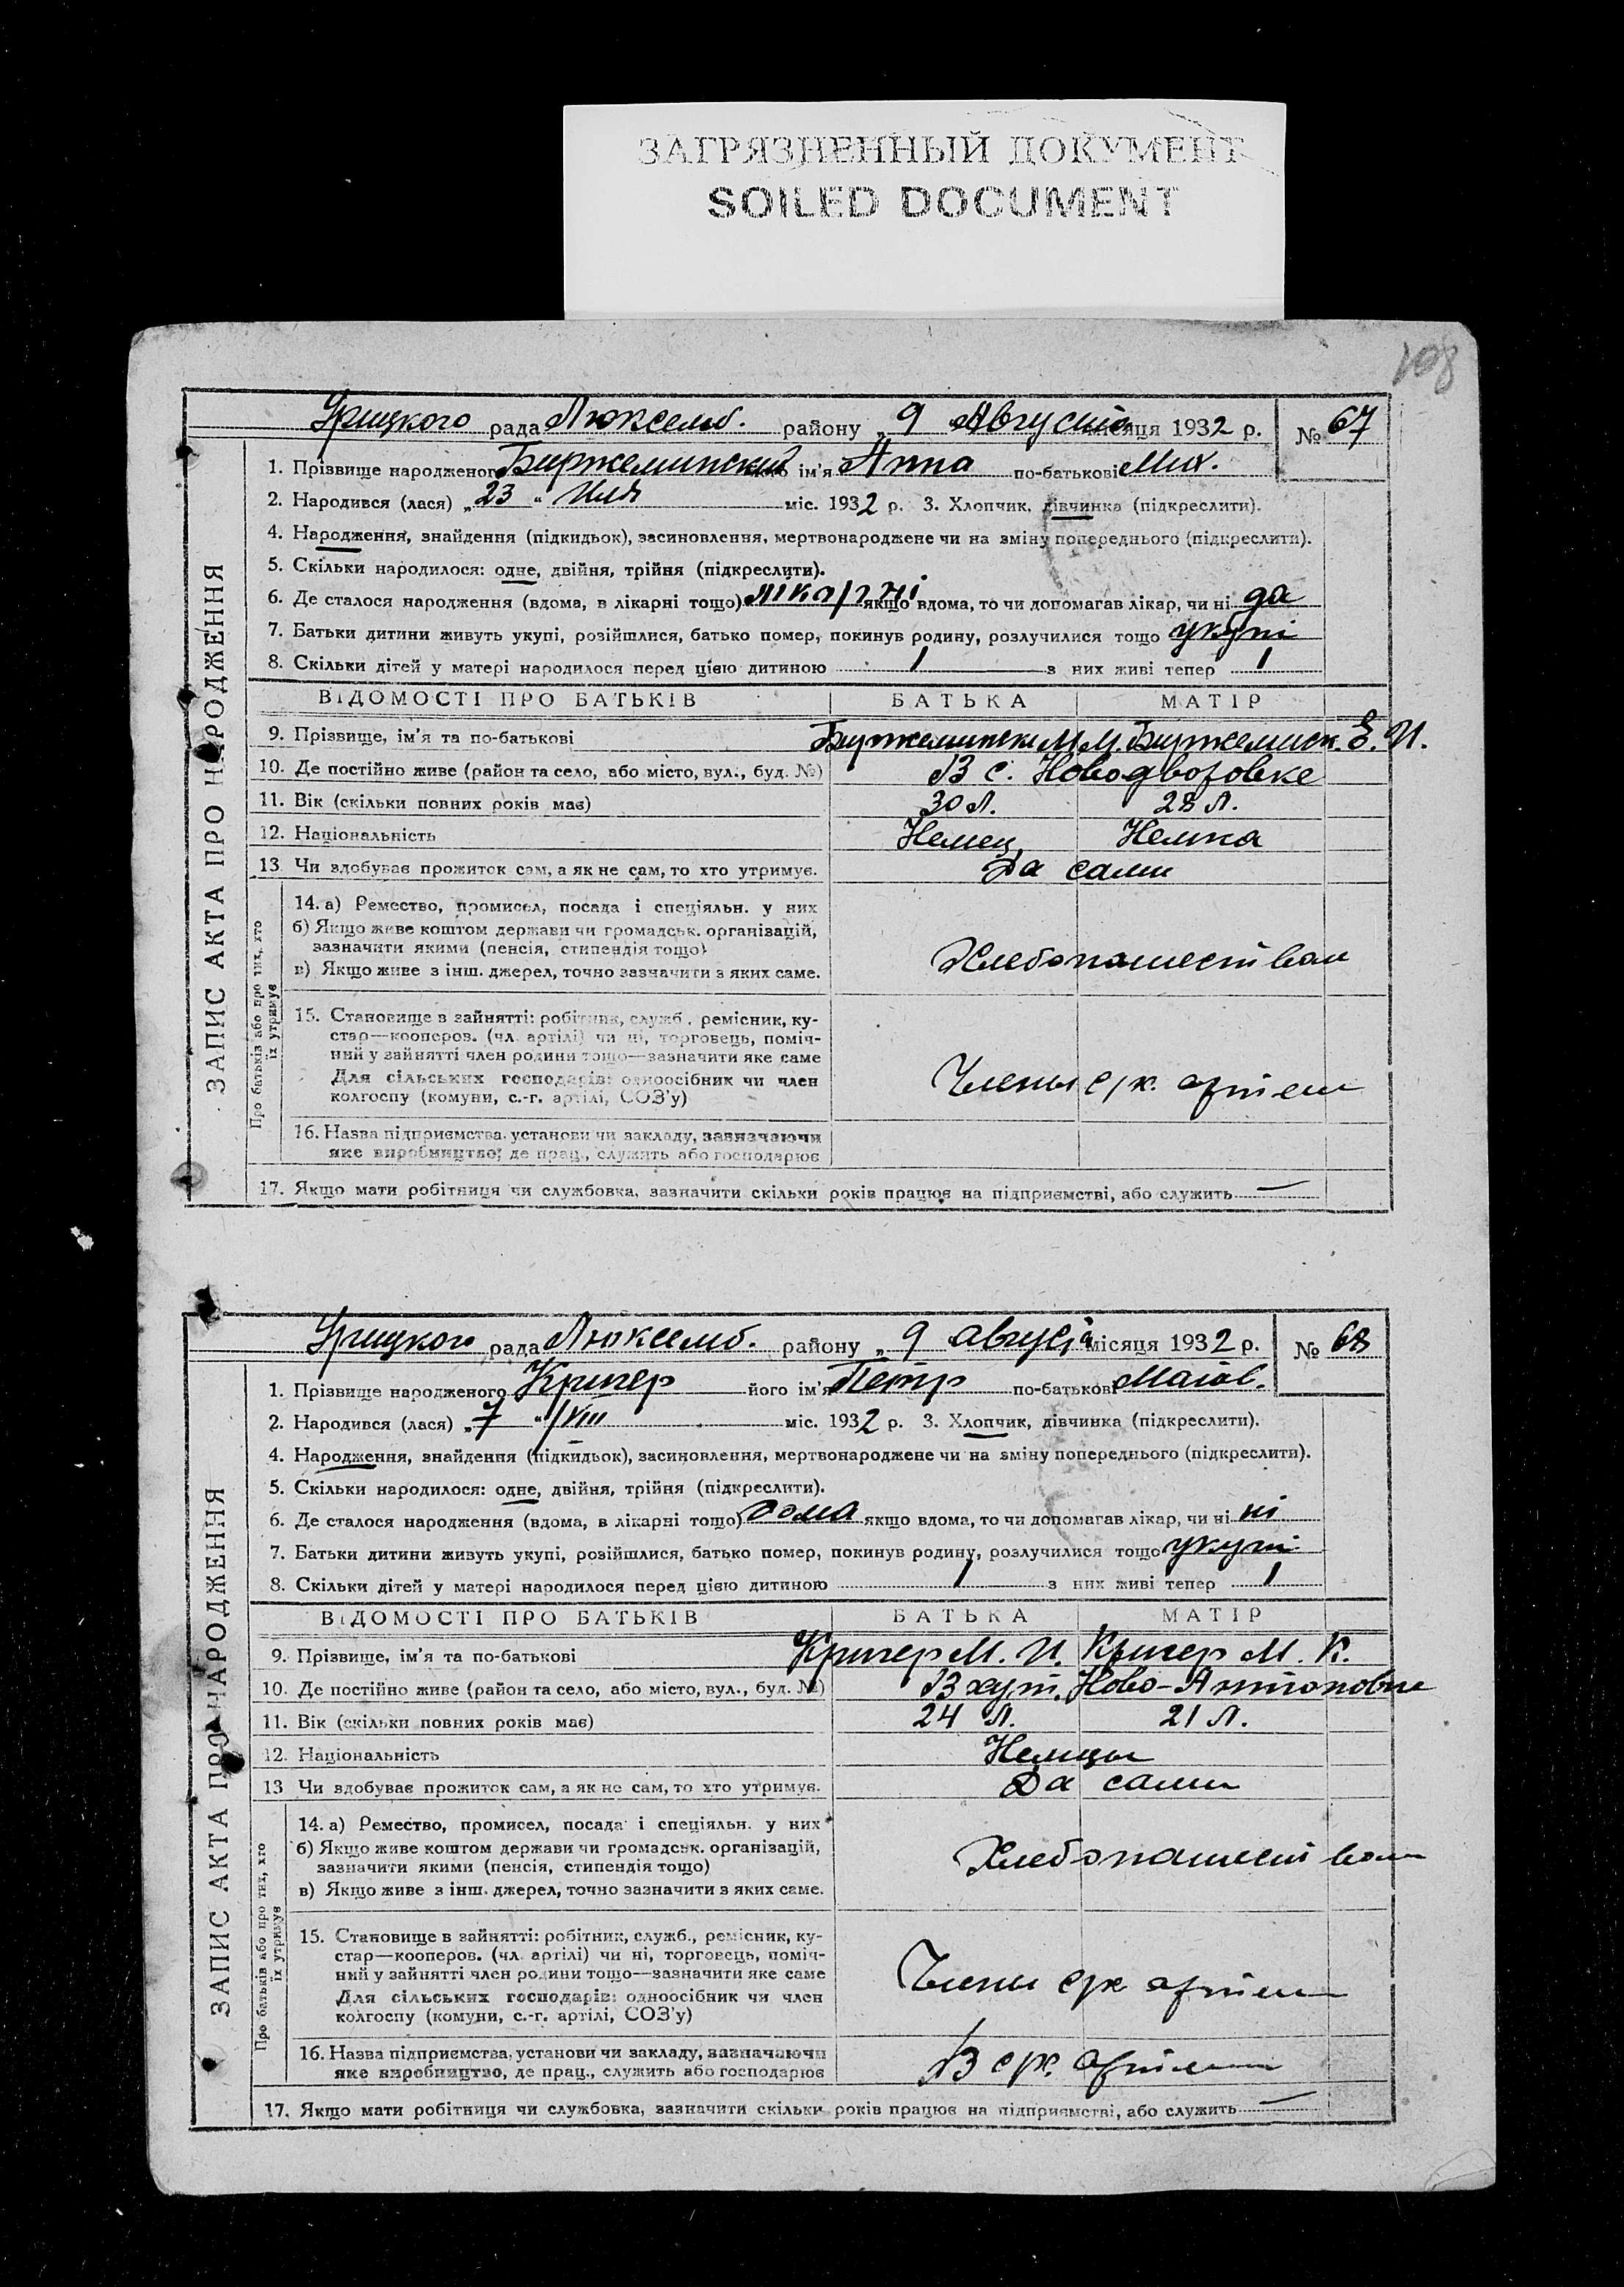 ЗАГРЯЗНЕННЫЙ ДОКУМЕНТ
SOILED DOCUMENT
108
ЗАПИС АКТА ПРО НАРОДЖЕННЯ
Урицкого рада Люксемб. району „ 9 Августа місяця 1932 р. № 67
1. Прізвище народженого Биржеминский його ім'я Анна по-батькові Мих.
2. Народився (лася) „ 23 “ Июля міс. 1932 р. 3. Хлопчик, дівчинка (підкреслити).
4. Народження, знайдення (підкидьок), засиновлення, мертвонароджене чи на зміну попереднього (підкреслити).
5. Скільки народилося: одне, двійня, трійня (підкреслити).
6. Де сталося народження (вдома, в лікарні тощо) лікарні якщо вдома, то чи допомагав лікар, чи ні да
7. Батьки дитини живуть укупі, розійшлися, батько помер, покинув родину, розлучилися тощо укупі
8. Скільки дітей у матері народилося перед цією дитиною 1 з них живі тепер 1
ВІДОМОСТІ ПРО БАТЬКІВ БАТЬКА МАТІР
9. Прізвище, ім'я та по-батькові Биржемински М. М. Биржеминск. Е. И.
10. Де постійно живе (район та село, або місто, вул., буд. №) В с. Новодворовке
11. Вік (скільки повних років має) 30 л. 28 л.
12. Національність Немец Немка
13. Чи здобуває прожиток сам, а як не сам, то хто утримує. Да сами
Про батьків або про тих, хто їх утримує
14. а) Ремество, промисел, посада і спеціяльн. у них
б) Якщо живе коштом держави чи громадськ. організацій,
зазначити якими (пенсія, стипендія тощо)
в) Якщо живе з інш. джерел, точно зазначити з яких саме.
Хлебопашеством
15. Становище в зайнятті: робітник, служб., ремісник, ку-
стар—коопеpов. (чл. артілі) чи ні, торговець, поміч-
ний у зайнятті член родини тощо—зазначити яке саме
Для сільських господарів: одноосібник чи член
колгоспу (комуни, с.-г. артілі, СОЗ'у)
Члены с/х. артели
16. Назва підприємства, установи чи закладу, зазначаючи
яке виробництво, де прац., служить або господарює
17. Якщо мати робітниця чи службовка, зазначити скільки років працює на підприємстві, або служить —
ЗАПИС АКТА ПРО НАРОДЖЕННЯ
Урицкого рада Люксемб. району „ 9 августа місяця 1932 р. № 68
1. Прізвище народженого Кригер його ім'я Петр по-батькові
2. Народився (лася) „ 7 “ /VIII міс. 1932 р. 3. Хлопчик, дівчинка (підкреслити).
4. Народження, знайдення (підкидьок), засиновлення, мертвонароджене чи на зміну попереднього (підкреслити).
5. Скільки народилося: одне, двійня, трійня (підкреслити).
6. Де сталося народження (вдома, в лікарні тощо) дома якщо вдома, то чи допомагав лікар, чи ні ні
7. Батьки дитини живуть укупі, розійшлися, батько помер, покинув родину, розлучилися тощо укупі
8. Скільки дітей у матері народилося перед цією дитиною 1 з них живі тепер 1
ВІДОМОСТІ ПРО БАТЬКІВ БАТЬКА МАТІР
9. Прізвище, ім'я та по-батькові Кригер М. И. Кригер М. К.
10. Де постійно живе (район та село, або місто, вул., буд. №) В хут. Ново-Антоновке
11. Вік (скільки повних років має) 24 л. 21 л.
12. Національність Немцы
13 Чи здобуває прожиток сам, а як не сам, то хто утримує. Да сами
Про батьків або про тих, хто їх утримує
14. а) Ремество, промисел, посада і спеціяльн. у них
б) Якщо живе коштом держави чи громадськ. організацій,
зазначити якими (пенсія, стипендія тощо)
в) Якщо живе з інш. джерел, точно зазначити з яких саме.
Хлебопашеством
15. Становище в зайнятті: робітник, служб., ремісник, ку-
стар—кооперов. (чл. артілі) чи ні, торговець, поміч-
ний у зайнятті член родини тощо—зазначити яке саме
Для сільських господарів: одноосібник чи член
колгоспу (комуни, с.-г. артілі, СОЗ'у)
Члены с/х артели
16. Назва підприємства, установи чи закладу, зазначаючи
яке виробництво, де прац., служить або господарює
В с/х. артели
17. Якщо мати робітниця чи службовка, зазначити скільки років працює на підприємстві, або служить —